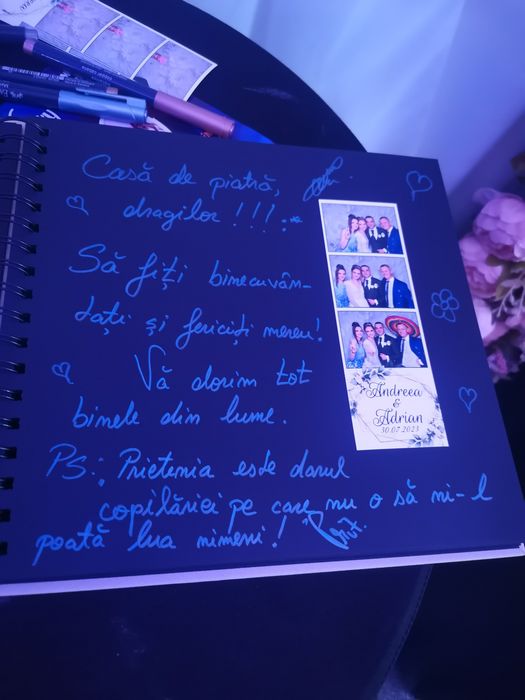 Casă de piatră,
dragilor !!!
Să fiți binecuvân-
tați și fericiți mereu!
Vă dorim tot
binele din lume.
PS: Prietenia este darul
copilăriei pe care nu o să ni-l
poată lua nimeni!
Andreea
&
Adrian
30.07.2023